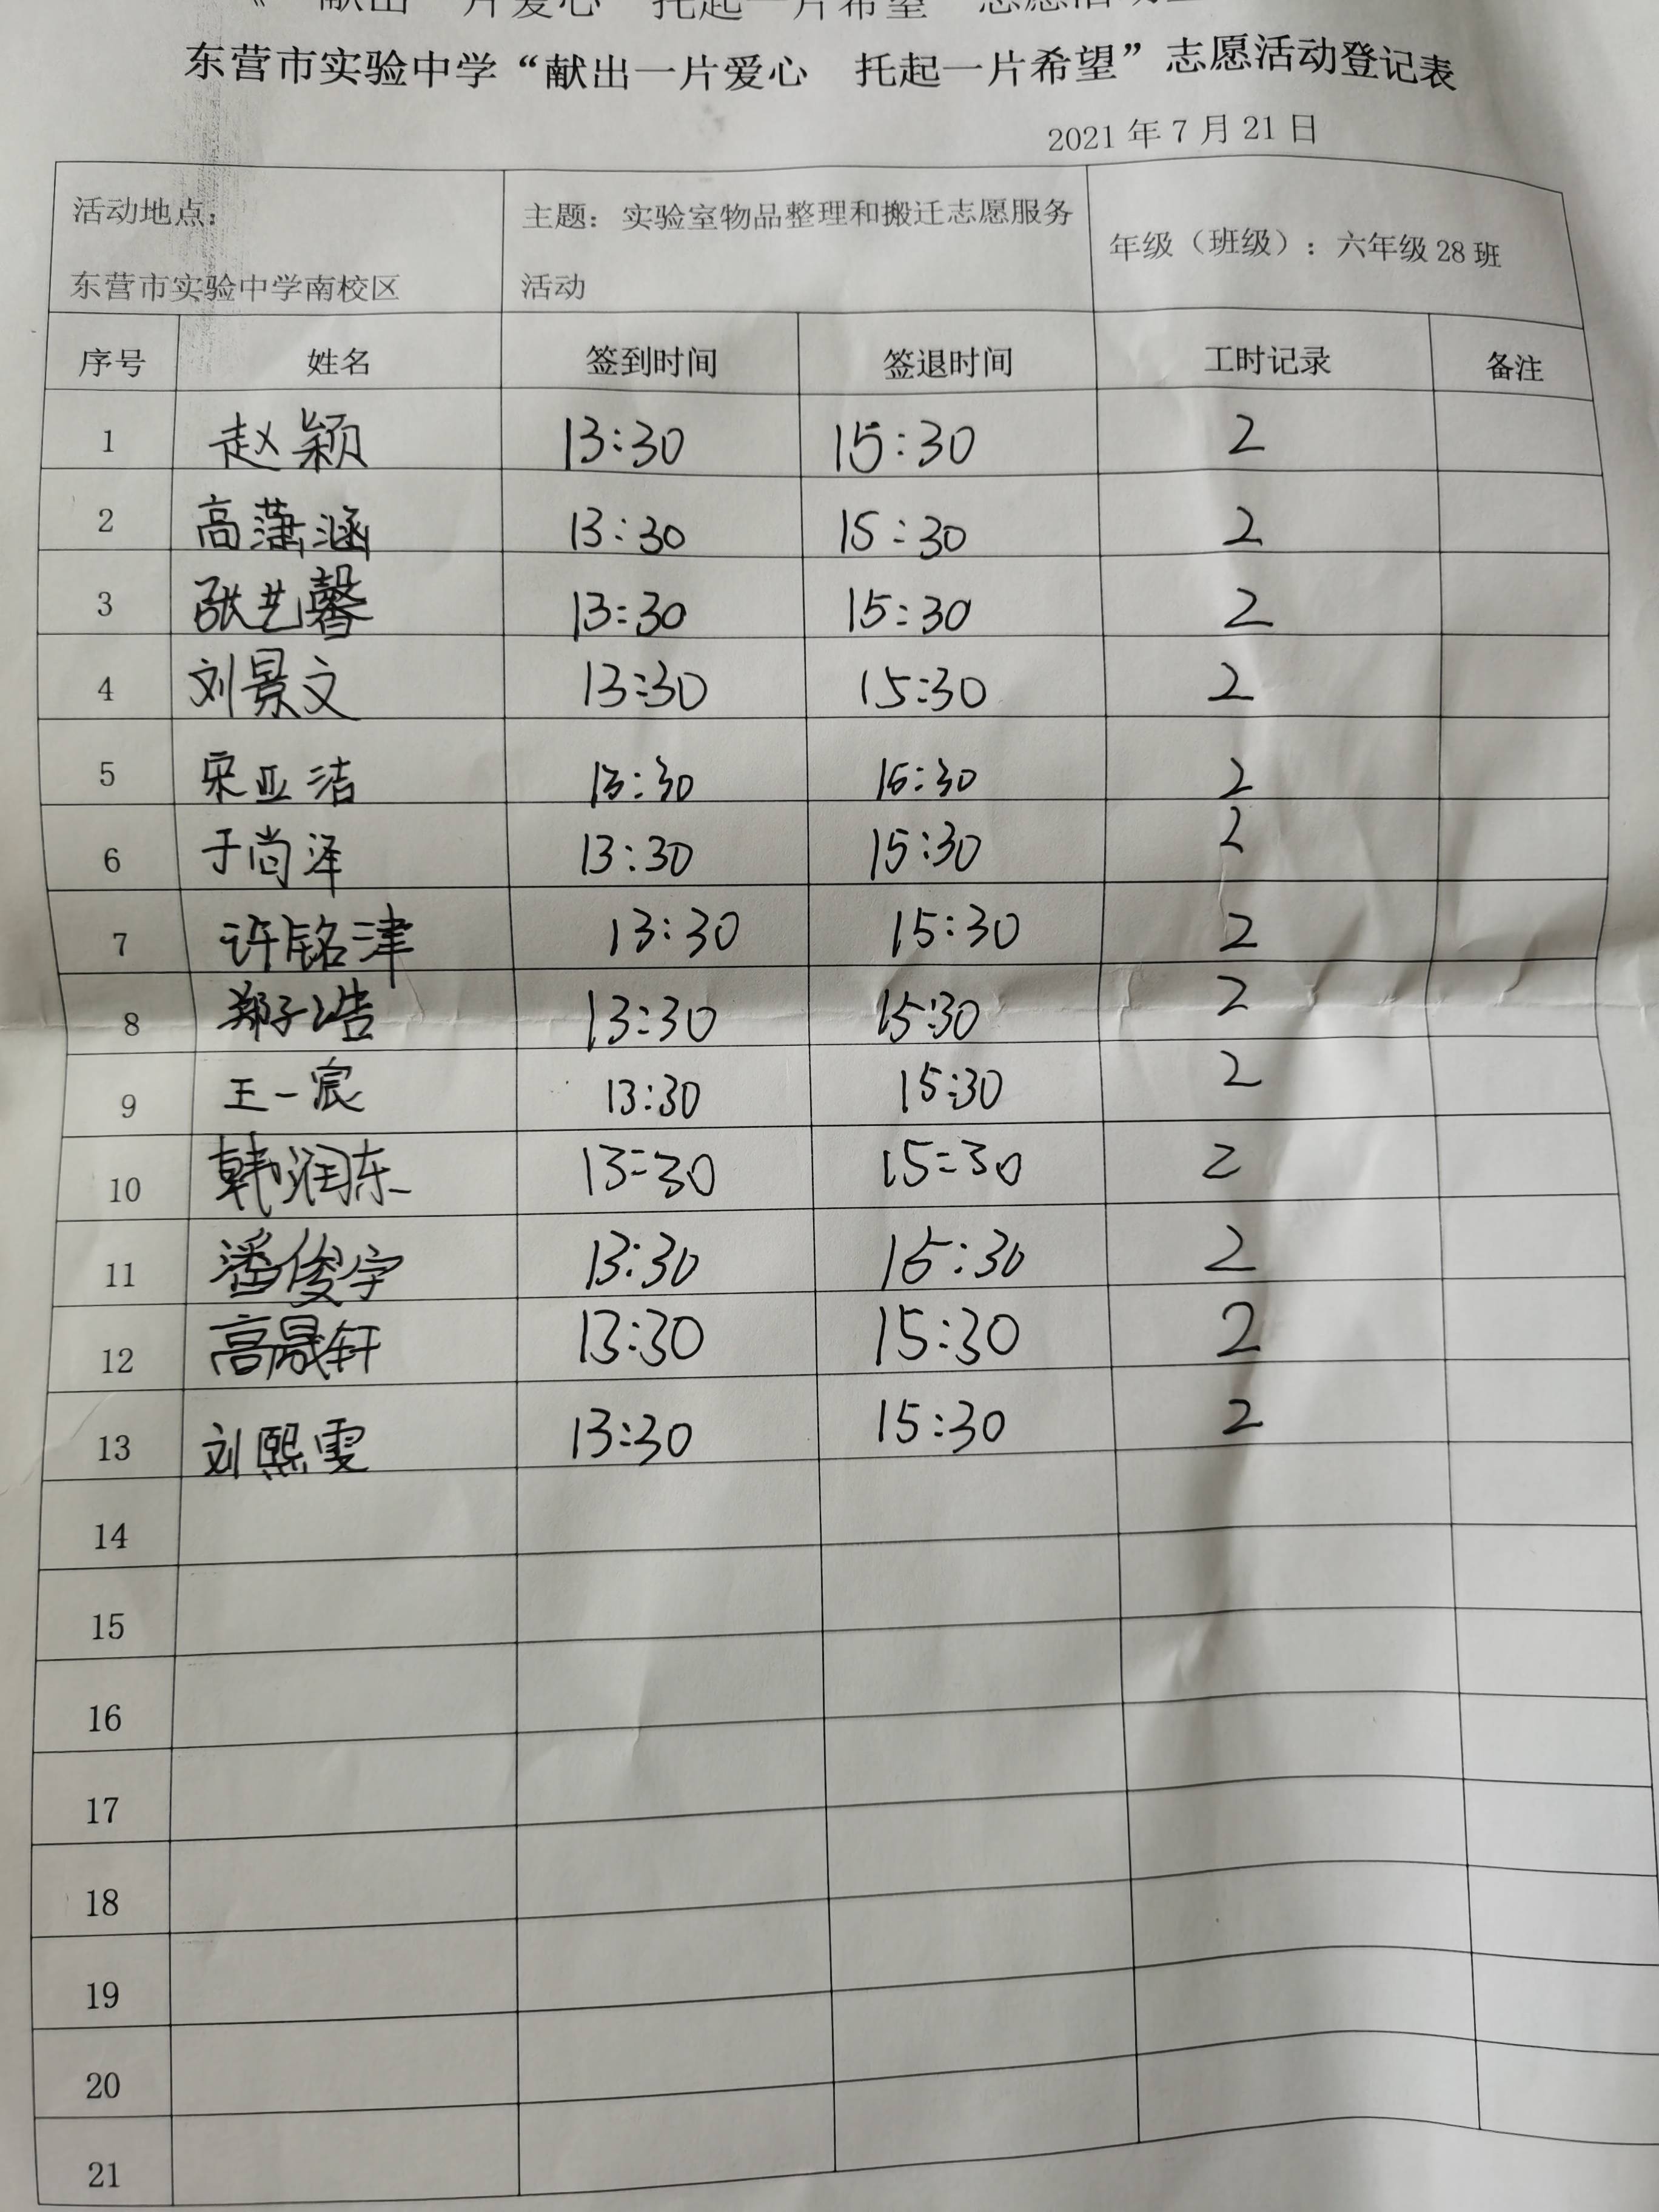 东营市实验中学“献出一片爱心 托起一片希望”志愿活动登记表
2021 年 7 月 21 日
活动地点： 主题：实验室物品整理和搬迁志愿服务 年级（班级）：六年级 28 班
东营市实验中学南校区 活动
序号 姓名 签到时间 签退时间 工时记录 备注
1 赵颖 13:30 15:30 2
2 高潇涵 13:30 15:30 2
3 张艺馨 13:30 15:30 2
4 刘景文 13:30 15:30 2
5 宋亚洁 13:30 15:30 2
6 于尚泽 13:30 15:30 2
7 许铭津 13:30 15:30 2
8 郑子浩 13:30 15:30 2
9 王一宸 13:30 15:30 2
10 韩润东 13:30 15:30 2
11 潘俊宇 13:30 15:30 2
12 高晟轩 13:30 15:30 2
13 刘熙雯 13:30 15:30 2
14
15
16
17
18
19
20
21